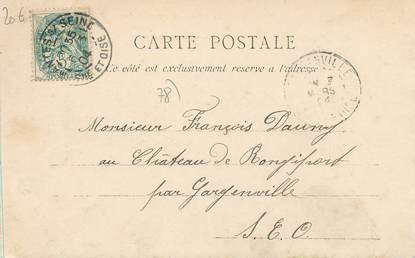 20 €
CARTE POSTALE
Ce côté est exclusivement réservé à l'adresse
78)
Monsieur François Dauny
au Château de Rongiport
par Gargenville
S. E. O.
SEINE
ET OISE
04